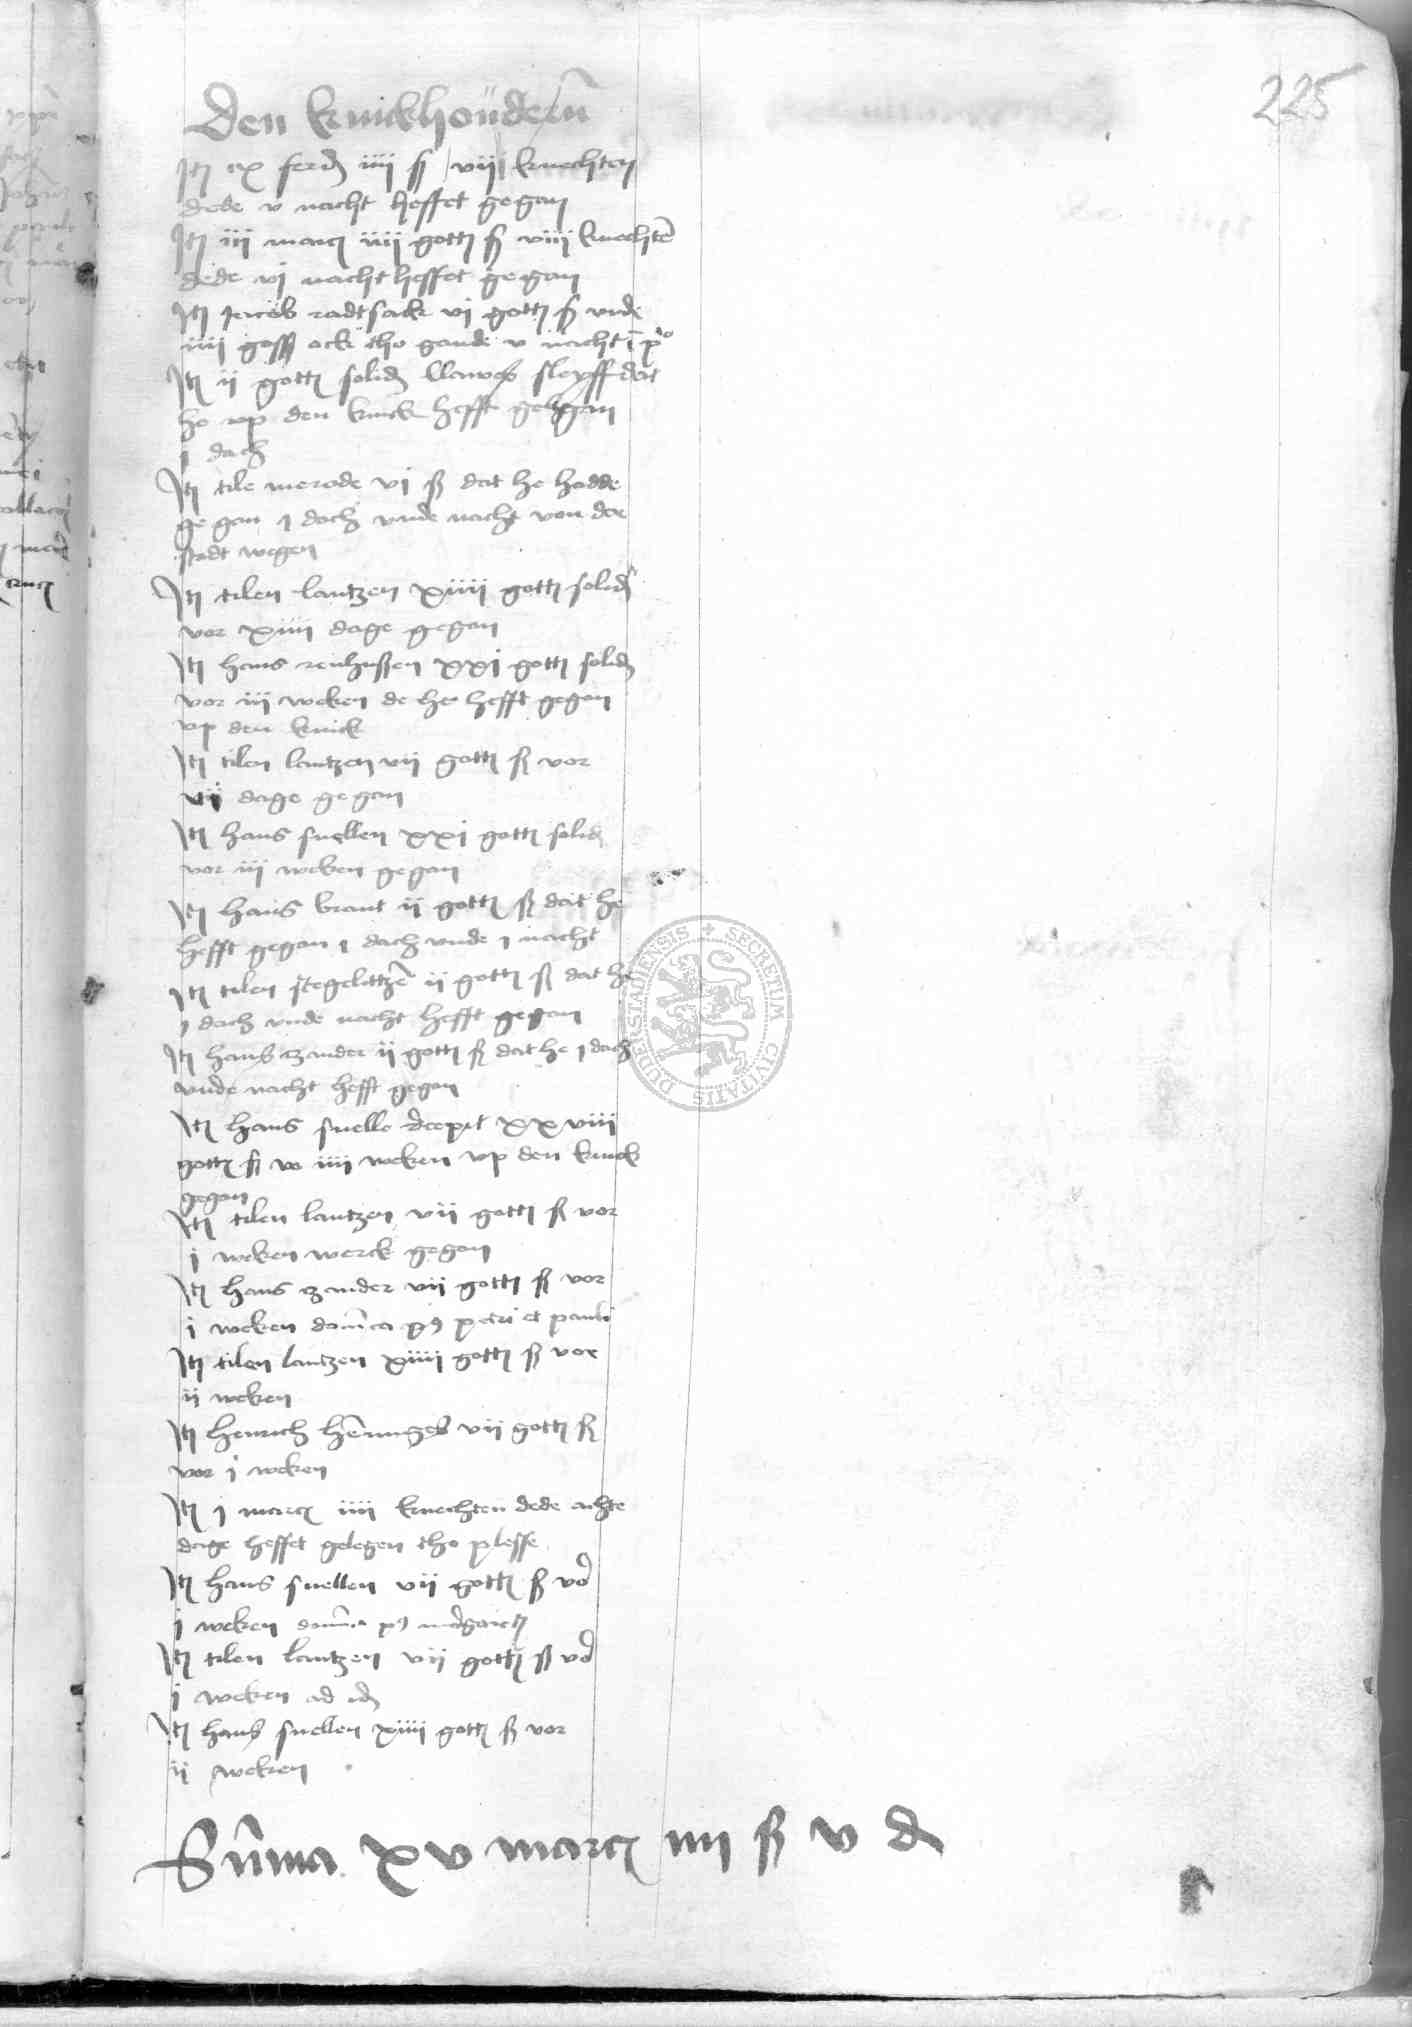 225
Den knickhouderen
Itm ix ferd iiii ß vii knechten
dede v nacht heffet gegan
Itm iii marc iiii gott ß viii knechte
dede vi nacht heffet gegan
Itm Jacob radtsack vi gott ß vnde
iiii goß ock tho gande v nacht i p
Itm ii gott solid Clawes sleyff dat
he vp den knick hefft gegan
i dach
Itm tile merode vi ß dat he hadde
gegan i dach vnde nacht von der
stadt wegen
Itm tilen lantzen xiiii gott solid
vor xiiii dage gegan
Itm hans renhußen xxi gott solid
vor iii weken de he hefft gegan
vp den knick
Itm tilen lantzen vii gott ß vor
vii dage gegan
Itm hans snellen xxi gott solid
vor iii weken gegan
Itm hans brant ii gott ß dat he
hefft gegan i dach vnde i nacht
Itm tilen stegelittze ii gott ß dat he
i dach vnde nacht hefft gegan
Itm hans zander ii gott ß dat he i dach
vnde nacht hefft gegan
Itm hans snelle recepit xxviii
gott ß vo iiii weken vp den knick
gegan
Itm tilen lantzen vii gott ß vor
i weken werck gegan
Itm hans zander vii gott ß vor
i weken domica p9 petri et pauli
Itm tilen lantzen xiiii gott ß vor
ii weken
Itm henrich henniges vii gott ß
vor i weken
Itm i marc iiii knechten dede achte
dage heffet gelegen tho plesse
Itm hans snellen vii gott ß vor
i weken domica p9 margarete
Itm tilen lantzen vii gott ß vor
i weken ad id
Itm hans snellen xiiii gott ß vor
ii weken
Summa xv marc iiii ß v d
SECRETUM CIVITATIS DUDERSTADIENSIS